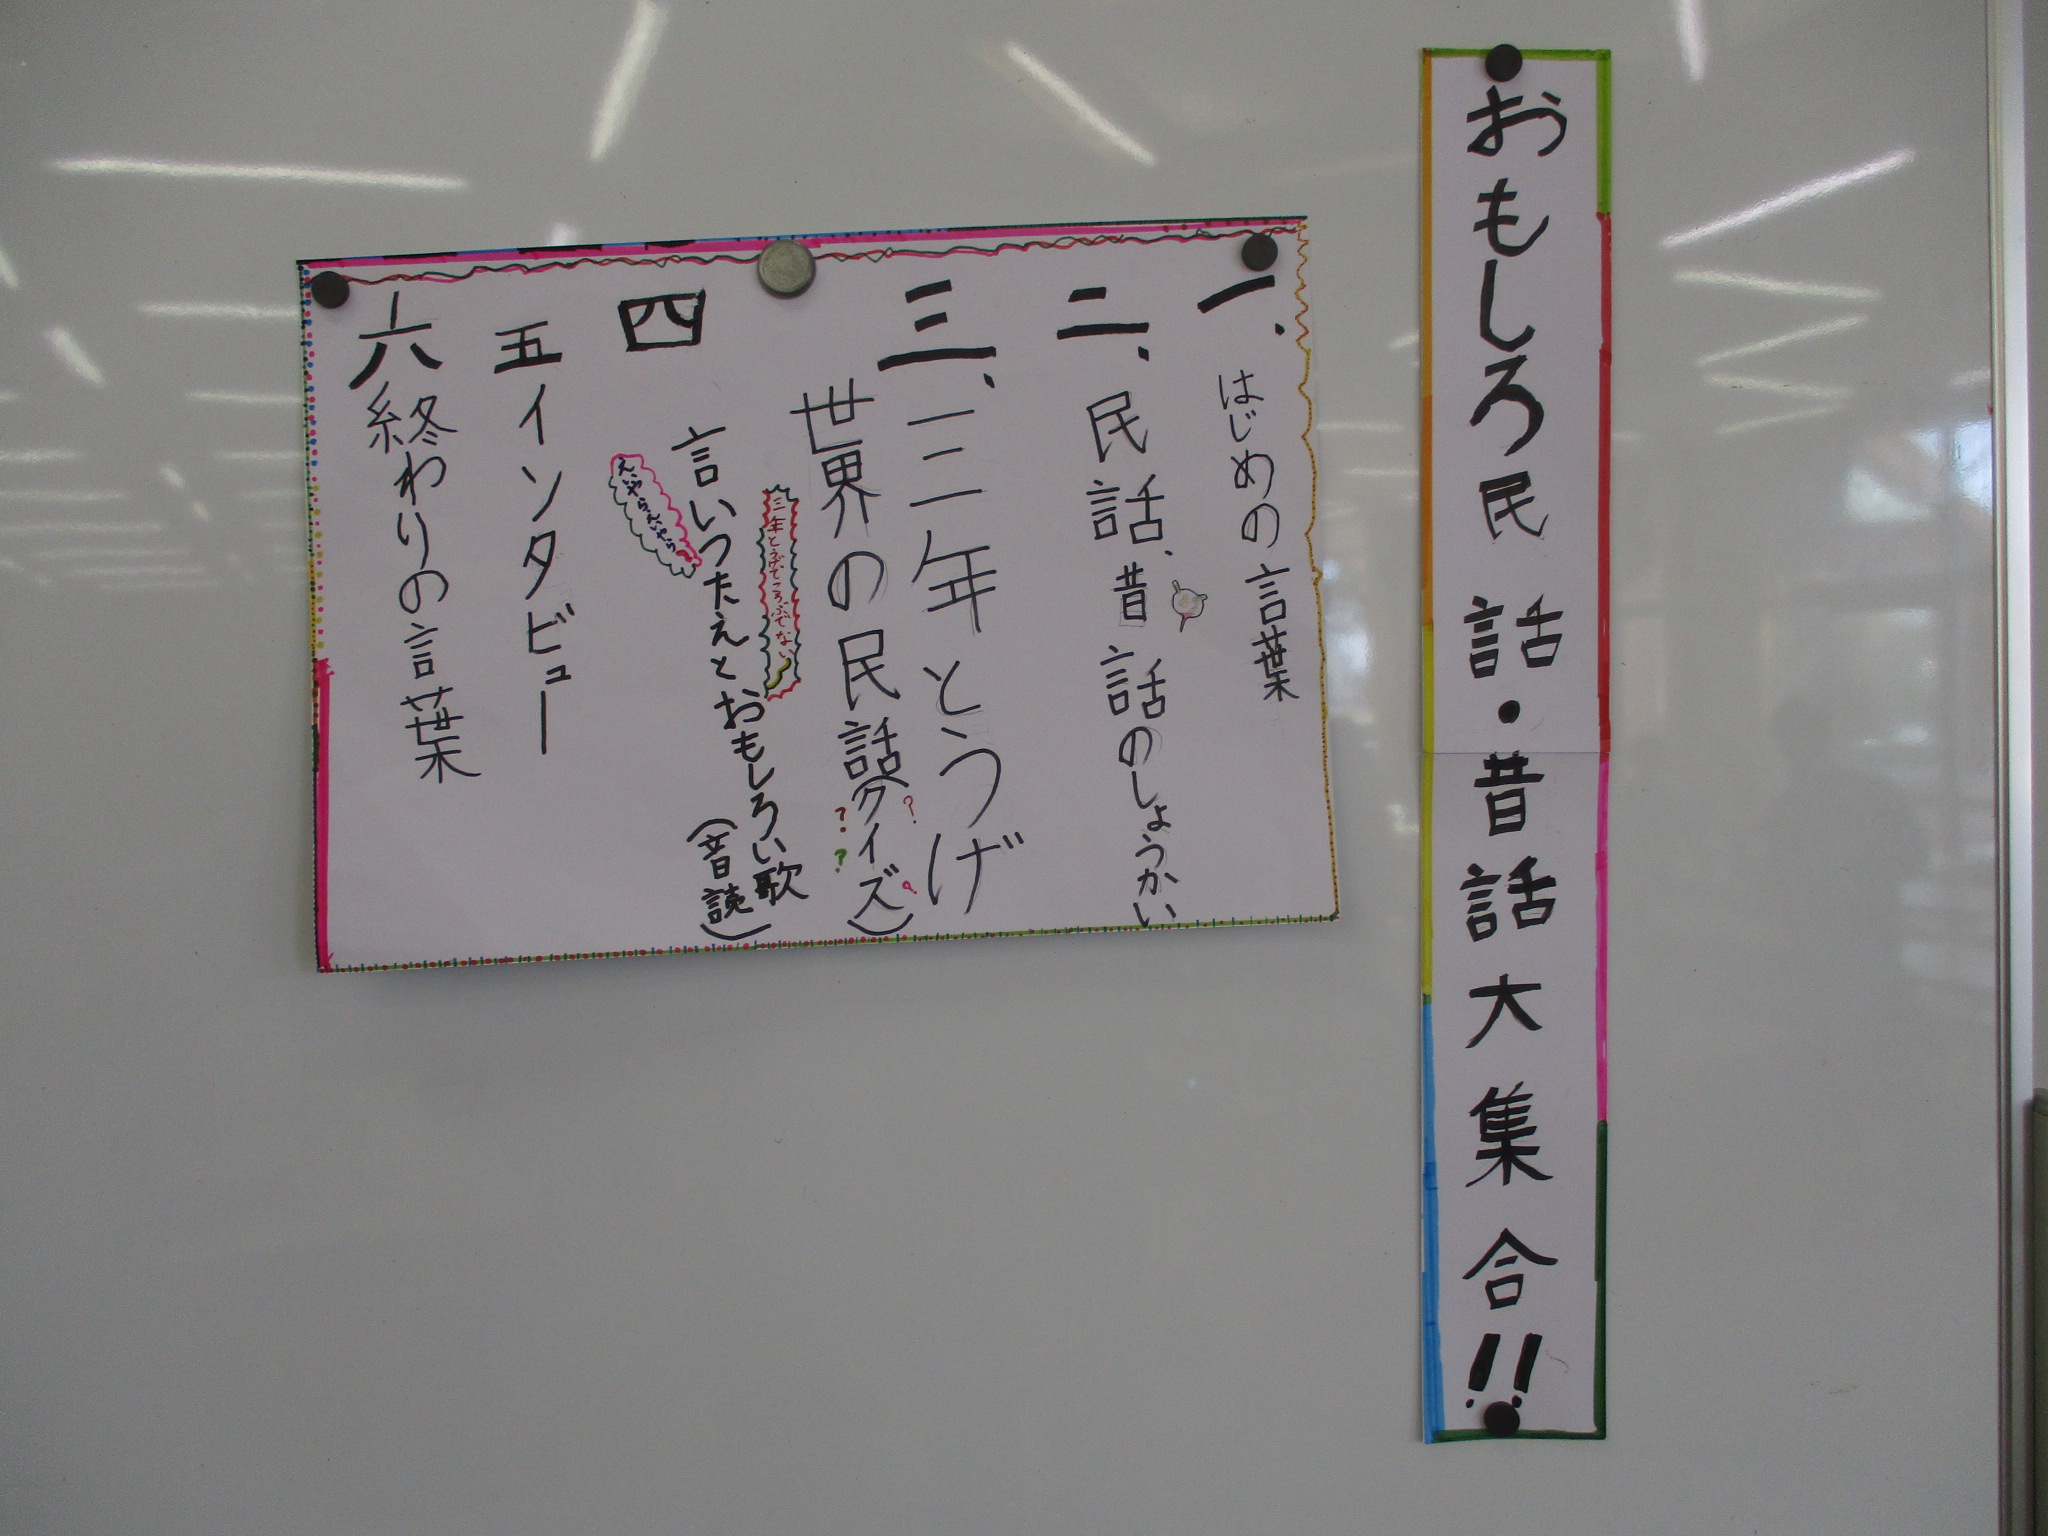 おもしろ民話・昔話大集合!!
一、はじめの言葉
二、民話、昔話のしょうかい
三、三年とうげ
世界の民話(クイズ)
? ? ? ?
三年とうげでころぶでない
四 言いつたえとおもしろい歌
(音読)
えいやらえいやら
五 インタビュー
六 終わりの言葉